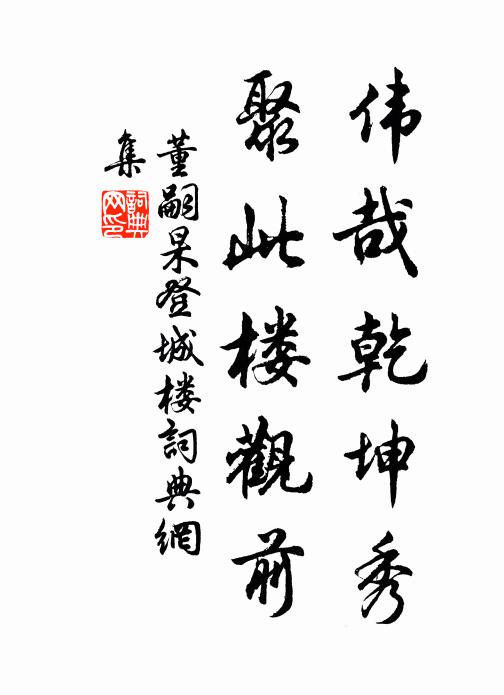 伟哉乾坤秀
聚此楼觀前
董嗣杲登城楼詞典網
集
詞典
网印